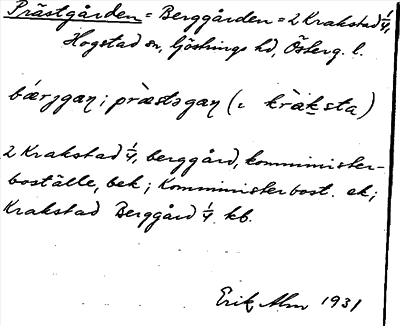 Prästgården = Berggården = 2 Krakstad 1/4,
Hogstad sn, Göstrings hd, Österg. l.
bærjgaɳ; præstəgaɳ (ɩ kràksta)
2 Krakstad 1/4, berggård, komminister-
boställe, bek; Komministerbost. ek;
Krakstad Berggård 1/4 kb.
Erik Alm 1931